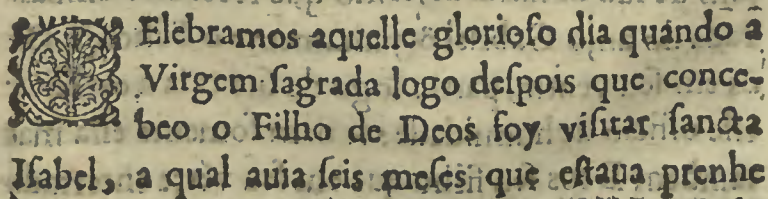 CElebramos aquelle glorioſo dia quando a
Virgem ſagrada logo deſpois que conce-
beo o Filho de Deos foy viſitar ſancta
Iſabel, a qual auia ſeis meſes que eſtaua prenhe